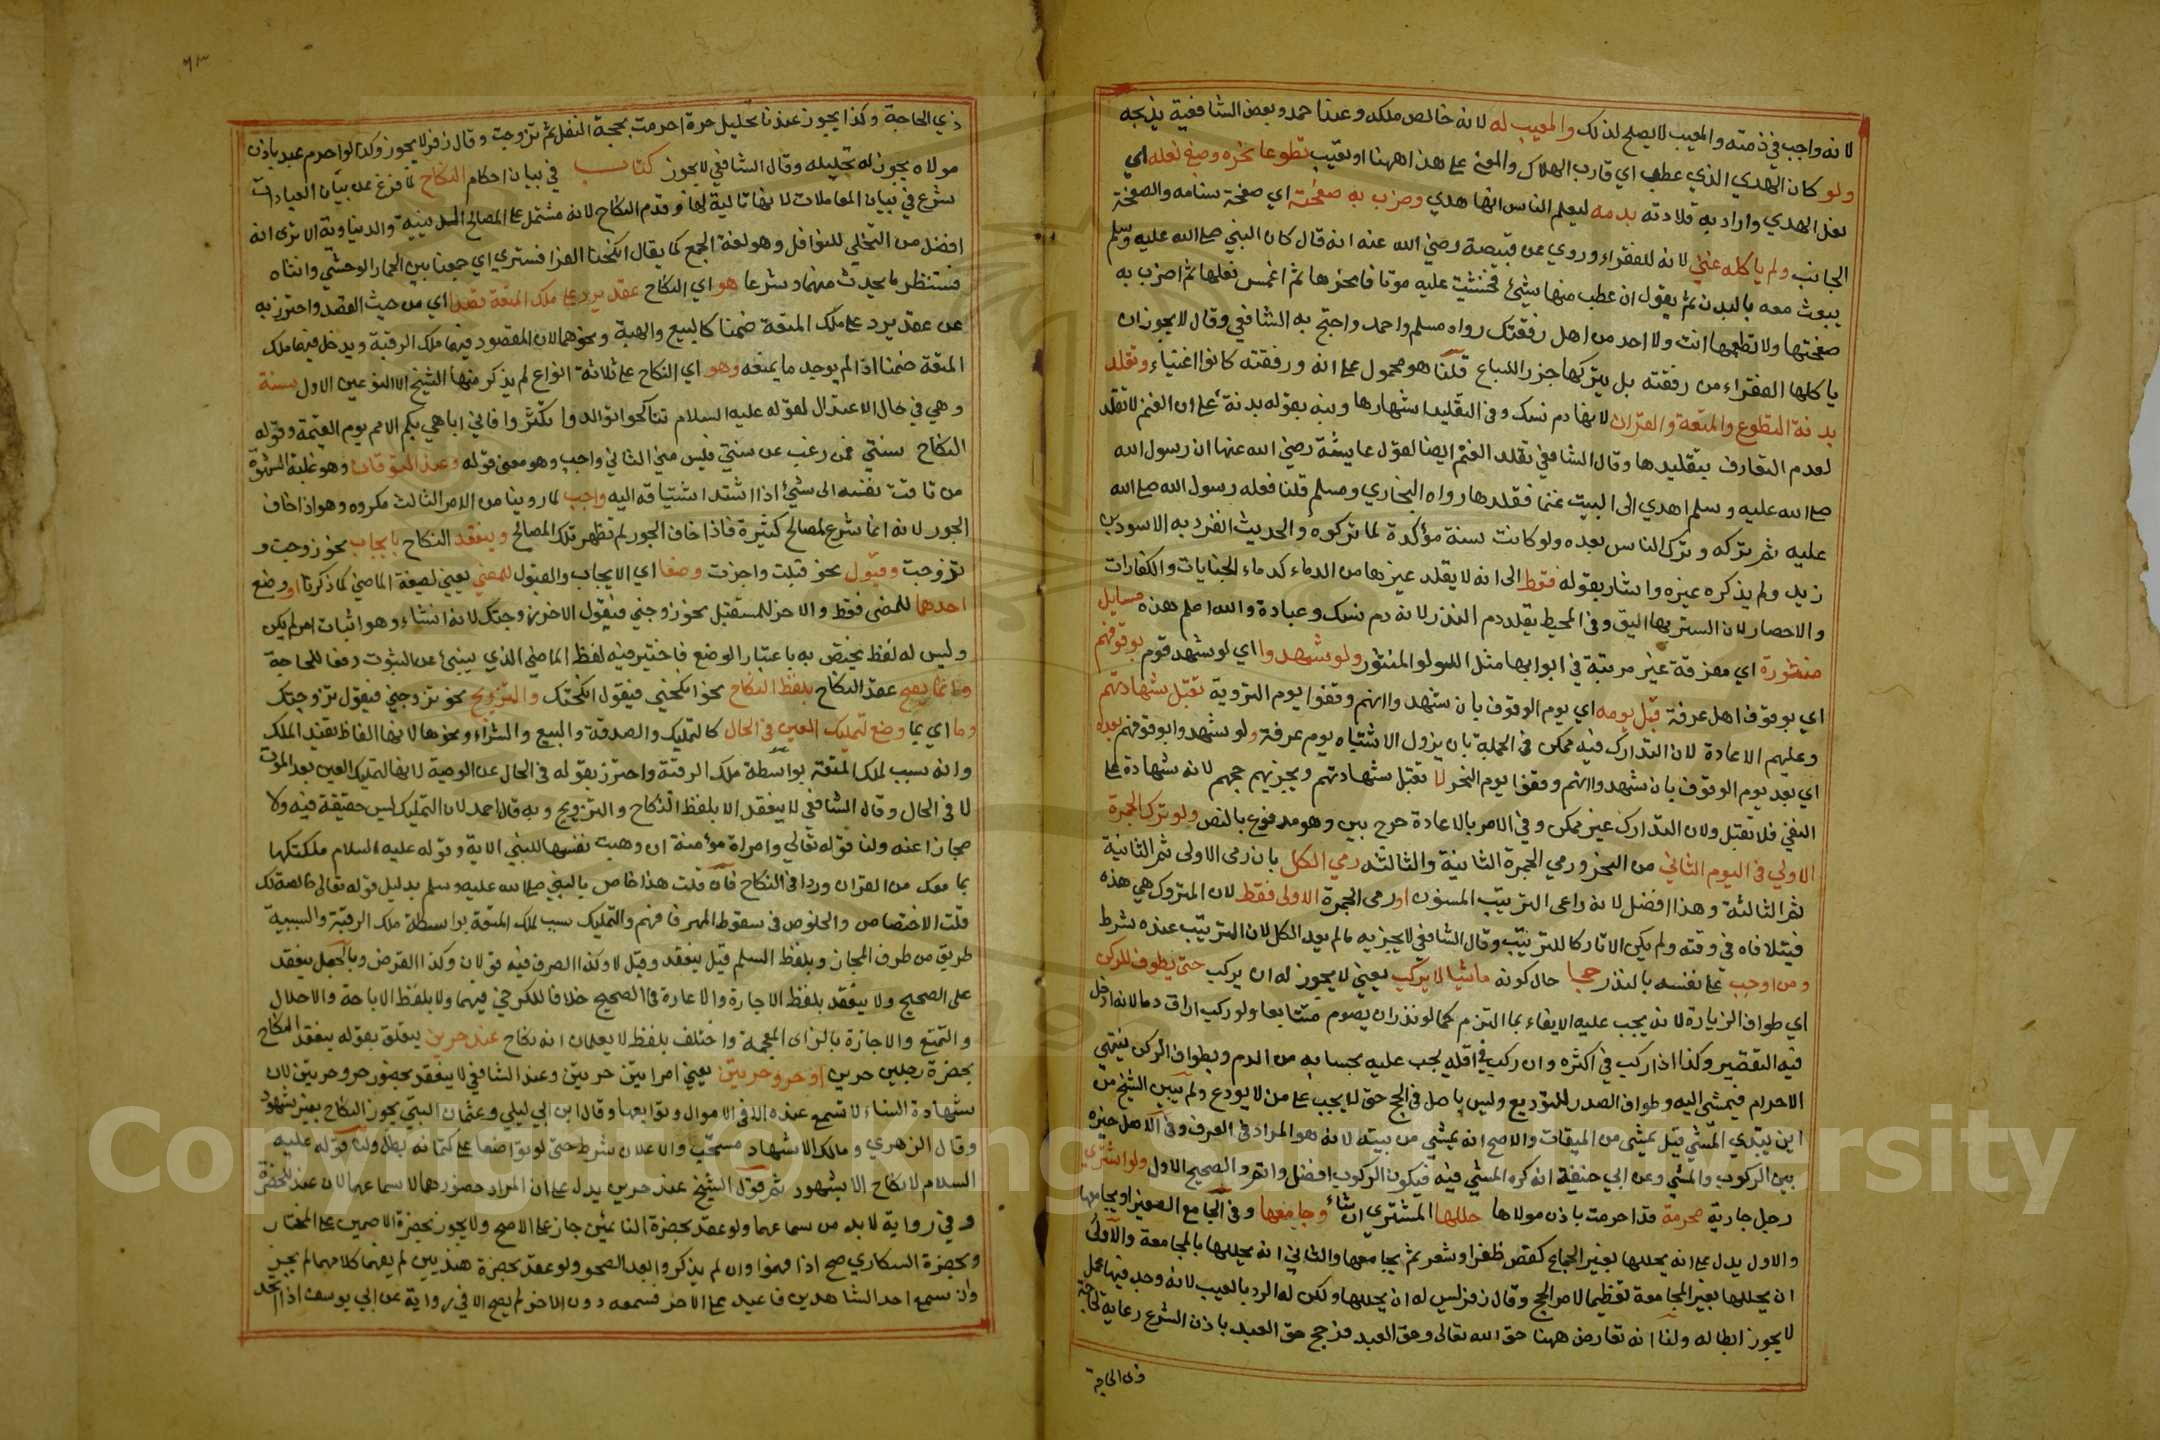 لانه واجب في ذمته والمعيب لا يصلح لذلك والمعيب له لانه خالص ملكه وعند احمد وبعض الشافعية يذبحه
ولو كان الهدي الذي عطب اي قارب الهلاك والمعنى على هذا ههنا او تعيب تطوعا نحره وصبغ نعله اي
نعل الهدي واراد به قلادته بدمه ليعلم الناس انها هدي وضرب به صفحته اي صفحة سنامه والصفحة
الجانب ولم ياكله غني لانه للفقراء وروي عن قبيصة رضي الله عنه انه قال كان النبي صلى الله عليه وسلم
يبعث معه بالبدن ثم يقول ان عطب منها شيئ فخشيت عليه موتا فانحرها ثم اغمس نعلها ثم اضرب به
صفحتها ولا تطعمها انت ولا احد من اهل رفقتك رواه مسلم واحمد واحتج به الشافعي وقال لا يجوز ان
ياكلها الفقراء من رفقته بل يتركها جزرا للسباع قلنا هو محمول على انه ورفقته كانوا اغنياء وتقلد
بدنة التطوع والمتعة والقران لانها دم نسك وفي التقليد اشهارها ونبه بقوله بدنة على ان الغنم لا تقلد
لعدم التعارف بتقليدها وقال الشافعي تقلد الغنم ايضا لقول عايشة رضي الله عنها ان رسول الله
صلى الله عليه وسلم اهدي الى البيت غنما فقلدها رواه البخاري ومسلم قلنا فعله رسول الله صلى الله
عليه ثم تركه وترك الناس بعده ولو كانت سنة مؤكدة لما تركوه والحديث انفرد به الاسود بن
زيد ولم يذكره غيره واشار بقوله فقط الى انه لا يقلد غيرها من الدماء كدماء الجنايات والكفارات
والاحصار لان الستر بها اليق وفي المحيط يقلد دم النذر لانه دم نسك وعبادة والله اعلم هذه مسايل
منثورة اي مفرقة غير مرتبة في ابوابها مثل اللولو المنثور ولو شهدوا اي لو شهد قوم بوقوفهم
اي بوقوف اهل عرفة قبل يومه اي يوم الوقوف بان شهدوا انهم وقفوا يوم التروية تقبل شهادتهم
وعليهم الاعادة لان التدارك فيه ممكن في الجملة بان يزول الاشتباه يوم عرفة ولو شهدوا بوقوفهم بعده
اي بعد يوم الوقوف بان شهدوا انهم وقفوا يوم النحر لا تقبل شهادتهم ويجزيهم حجهم لانه شهادة على
النفي فلا تقبل ولان التدارك غير ممكن وفي الامر بالاعادة حرج بين وهو مدفوع بالنص ولو ترك الجمرة
الاولى في اليوم الثاني من النحر ورمي الجمرة الثانية والثالثه رمي الكل بان رمى الاولى ثم الثانية
ثم الثالثة وهذا افضل لانه راعى الترتيب المسنون او رمى الجمرة الاولى فقط لان المتروك هي هذه
فيتلافاه في وقته ولم يكن الا تاركا للترتيب وقال الشافعي لا يجزيه ما لم يعد الكل لان الترتيب عنده شرط
ومن اوجب على نفسه بالنذر حجا حال كونه ماشيا لا يركب يعني لا يجوز له ان يركب حتى يطوف للركن
اي طواف الزيارة لانه يجب عليه الايفاء بما التزم كما لو نذر ان يصوم متتابعا ولو ركب اراق دما لانه ادخل
فيه التقصير وكذا اذا ركب في اكثره وان ركب في اقله يجب عليه بحسابه من الدم وبطواف الركن ينتهي
الاحرام فيمشي اليه وطواف الصدر للتوديع وليس باصل في الحج حتى لا يجب على من لا يودع ولم يبين الشيخ من
اين يبتدي المشي قيل يمشي من الميقات والاصح انه يمشي من بيته لانه هو المراد في العرف وفي الاصل خيره
بين الركوب والمشي وعن ابي حنيفة انه كره المشي فيه فيكون الركوب افضل واتم والصحيح الاول ولو اشترى
رجل جارية محرمة قد احرمت باذن مولاها حللها المشتري ان شاء وجامعها وفي الجامع الصغير او يجامعها
والاول يدل على انه يحللها بغير الجماع كقص ظفر او شعر ثم يجامعها والثاني انه يحللها بالمجامعة والاولى
ان يحللها بغير المجامعة تعظيما لامر الحج وقال زفر ليس له ان يحللها ولكن له الرد بالعيب لانه وجد فيها عمل
لا يجوز ابطاله ولنا انه تعارض ههنا حق الله تعالى وحق العبد فرجح حق العبد باذن الشرع رعاية لحاجة
ذي الحاجة
ذي الحاجة وكذا يجوز عندنا تحليل حرة احرمت بحجة النفل ثم تزوجت وقال زفر لا يجوز وكذا لو احرم عبد باذن
مولاه يجوز له تحليله وقال الشافعي لا يجوز كتاب في بيان احكام النكاح لما فرغ عن بيان العبادات
شرع في بيان المعاملات لانها تالية لها وقدم النكاح لانه مشتمل على المصالح الدينية والدنياوية الا ترى انه
افضل من التخلي للنوافل وهو لغة الجمع كما يقال انكحنا الفرا فسنرى اي جمعنا بين الحمار الوحشي وانثاه
فسننظر ما يحدث منهما وشرعا هو اي النكاح عقد يرد على ملك المتعة قصدا اي من حيث القصد واحترز به
عن عقد يرد على ملك المتعة ضمنا كالبيع والهبة ونحوهما لان المقصود فيها ملك الرقبة ويدخل فيها ملك
المتعة ضمنا اذا لم يوجد ما يمنعه وهو اي النكاح على ثلاثة انواع لم يذكر منها الشيخ الا النوعين الاول سنة
وهي في حال الاعتدال لقوله عليه السلام تناكحوا توالدوا تكثروا فاني اباهي بكم الامم يوم القيمة وقوله
النكاح سنتي فمن رغب عن سنتي فليس مني الثاني واجب وهو معنى قوله وعند التوقان وهو غلبة الشهوة
من تاقت نفسه الى شيئ اذا اشتد اشتياقه اليه واجب لما روينا من الامر الثالث مكروه وهو اذا خاف
الجور لانه انما شرع لمصالح كثيرة فاذا خاف الجور لم تظهر تلك المصالح وينعقد النكاح بايجاب نحو زوجت و
تزوجت وقبول نحو قبلت واجزت وضعا اي الايجاب والقبول للمضي يعني لصيغة الماضي كما ذكرنا او وضع
احدهما للمضى فقط والاخر للمستقبل نحو زوجني فيقول الاخر زوجتك لانه انشاء وهو اثبات امر لم يكن
وليس له لفظ يختص به باعتبار الوضع فاختير فيه لفظ الماضي الذي ينبئ عن الثبوت دفعا للحاجة
وانما يصح عقد النكاح بلفظ النكاح نحو انكحني فيقول انكحتك والتزويج نحو تزوجيني فيقول تزوجتك
وما اي بما وضع لتمليك العين في الحال كالتمليك والصدقة والبيع والشراء ونحوها لانها الفاظ تفيد الملك
وانه سبب لملك المتعة بواسطة ملك الرقبة واحترز بقوله في الحال عن الوصية لانها لتمليك العين بعد الموت
لا في الحال وقال الشافعي لا ينعقد الا بلفظ النكاح والتزويج وبه قال احمد لان التمليك ليس حقيقة فيه ولا
مجازا عنه ولنا قوله تعالي وامراة مؤمنة ان وهبت نفسها للنبي الاية وقوله عليه السلام ملكتكها
بما معك من القران وردا في النكاح فان قلت هذا خاص بالنبي صلى الله عليه وسلم بدليل قوله تعالى خالصة لك
قلت الاختصاص والخلوص في سقوط المهر فافهم والتمليك سبب لملك المتعة بواسطة ملك الرقبة والسببية
طريق من طرف المجاز وبلفظ السلم قيل ينعقد وقيل لا وكذا الصرف فيه قولان وكذا القرض وبالجعل ينعقد
على الصحيح ولا ينعقد بلفظ الاجارة والاعارة في الصحيح خلافا للكرخي فيهما ولا بلفظ الاباحة والاحلال
والتمتع والاجازة بالزاي المعجمة واختلف بلفظ لا يعلمان انه نكاح عند حرين يتعلق بقوله ينعقد النكاح
بحضرة رجلين حرين او حر وحرتين يعني امراتين حرتين وعند الشافعي لا ينعقد بحضور حر وحرتين لان
شهادة النساء لا تسمع عنده الا في الاموال وتوابعها وقال ابن ابي ليلي وعثمان البتي يجوز النكاح بغير شهود
وقال الزهري ومالك الاشهاد مستحب والاعلان شرط حتى لو تواضعا على كتمانه بطل ولنا قوله عليه
السلام لا نكاح الا بشهود ثم قول الشيخ عند حرين يدل على ان المراد حضورهما لا سماعهما لان عند للحضرة
وفي رواية لا بد من سماعهما ولو عقد بحضرة النائمين جاز على الاصح ولا يجوز بحضرة الاصمين على المختار
وبحضرة السكاري صح اذا فهموا وان لم يذكروا بعد الصحو ولو عقد بحضرة هنديين لم يفهما كلامهما لم يجز
وان سمع احد الشاهدين فاعيد على الاخر فسمعه دون الاخر لم يصح الا في رواية عن ابي يوسف اذا اتحد
Copyright © King Saud University